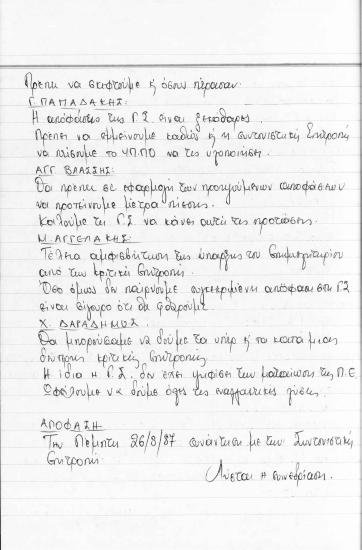 Πρέπει να σκεφτούμε ή όσους πέρασαν.
Γ. ΠΑΠΑΔΑΚΗΣ:
Η απόφαση της Γ.Σ είναι ξεκάθαρες.
Πρέπει να εμμείνουμε καθώς ή η συντονιστική Επιτροπή
να πείσουμε το ΥΠ.ΠΟ να τις υλοποιήσει.
ΑΓΓ. ΒΛΑΣΣΗΣ:
Θα πρέπει σε εφαρμογή των προηγούμενων αποφάσεων
να προτείνουμε μέτρα πίεσης.
Καλούμε τη Γ.Σ να κάνει αυτή τις προτάσεις.
Μ. ΑΓΓΕΛΑΚΗΣ:
Τέλεια αμφισβήτηση της ύπαρξης του Επιμελητηρίου
από των κριτική Επιτροπή.
Όσο όμως δεν παίρνουμε συγκεκριμένη απόφαση στη Γ.Σ
είναι σίγουρο ότι θα φθαρούμε.
Χ. ΔΑΡΑΔΗΜΟΣ:
Θα μπορούσαμε να δούμε τα υπέρ ή τα κατά μιας
δεύτερης κριτικής Επιτροπής.
Η ίδια η Γ.Σ. δεν έχει ψηφίσει των ματαίωση της Π.Ε.
Οφείλουμε να δούμε όλες τις εναλλακτικές λύσεις.
ΑΠΟΦΑΣΗ
Την Πέμπτη 26/3/87 συνάντηση με την Συντονιστική
Επιτροπή.
Λύεται η συνεδρίαση.